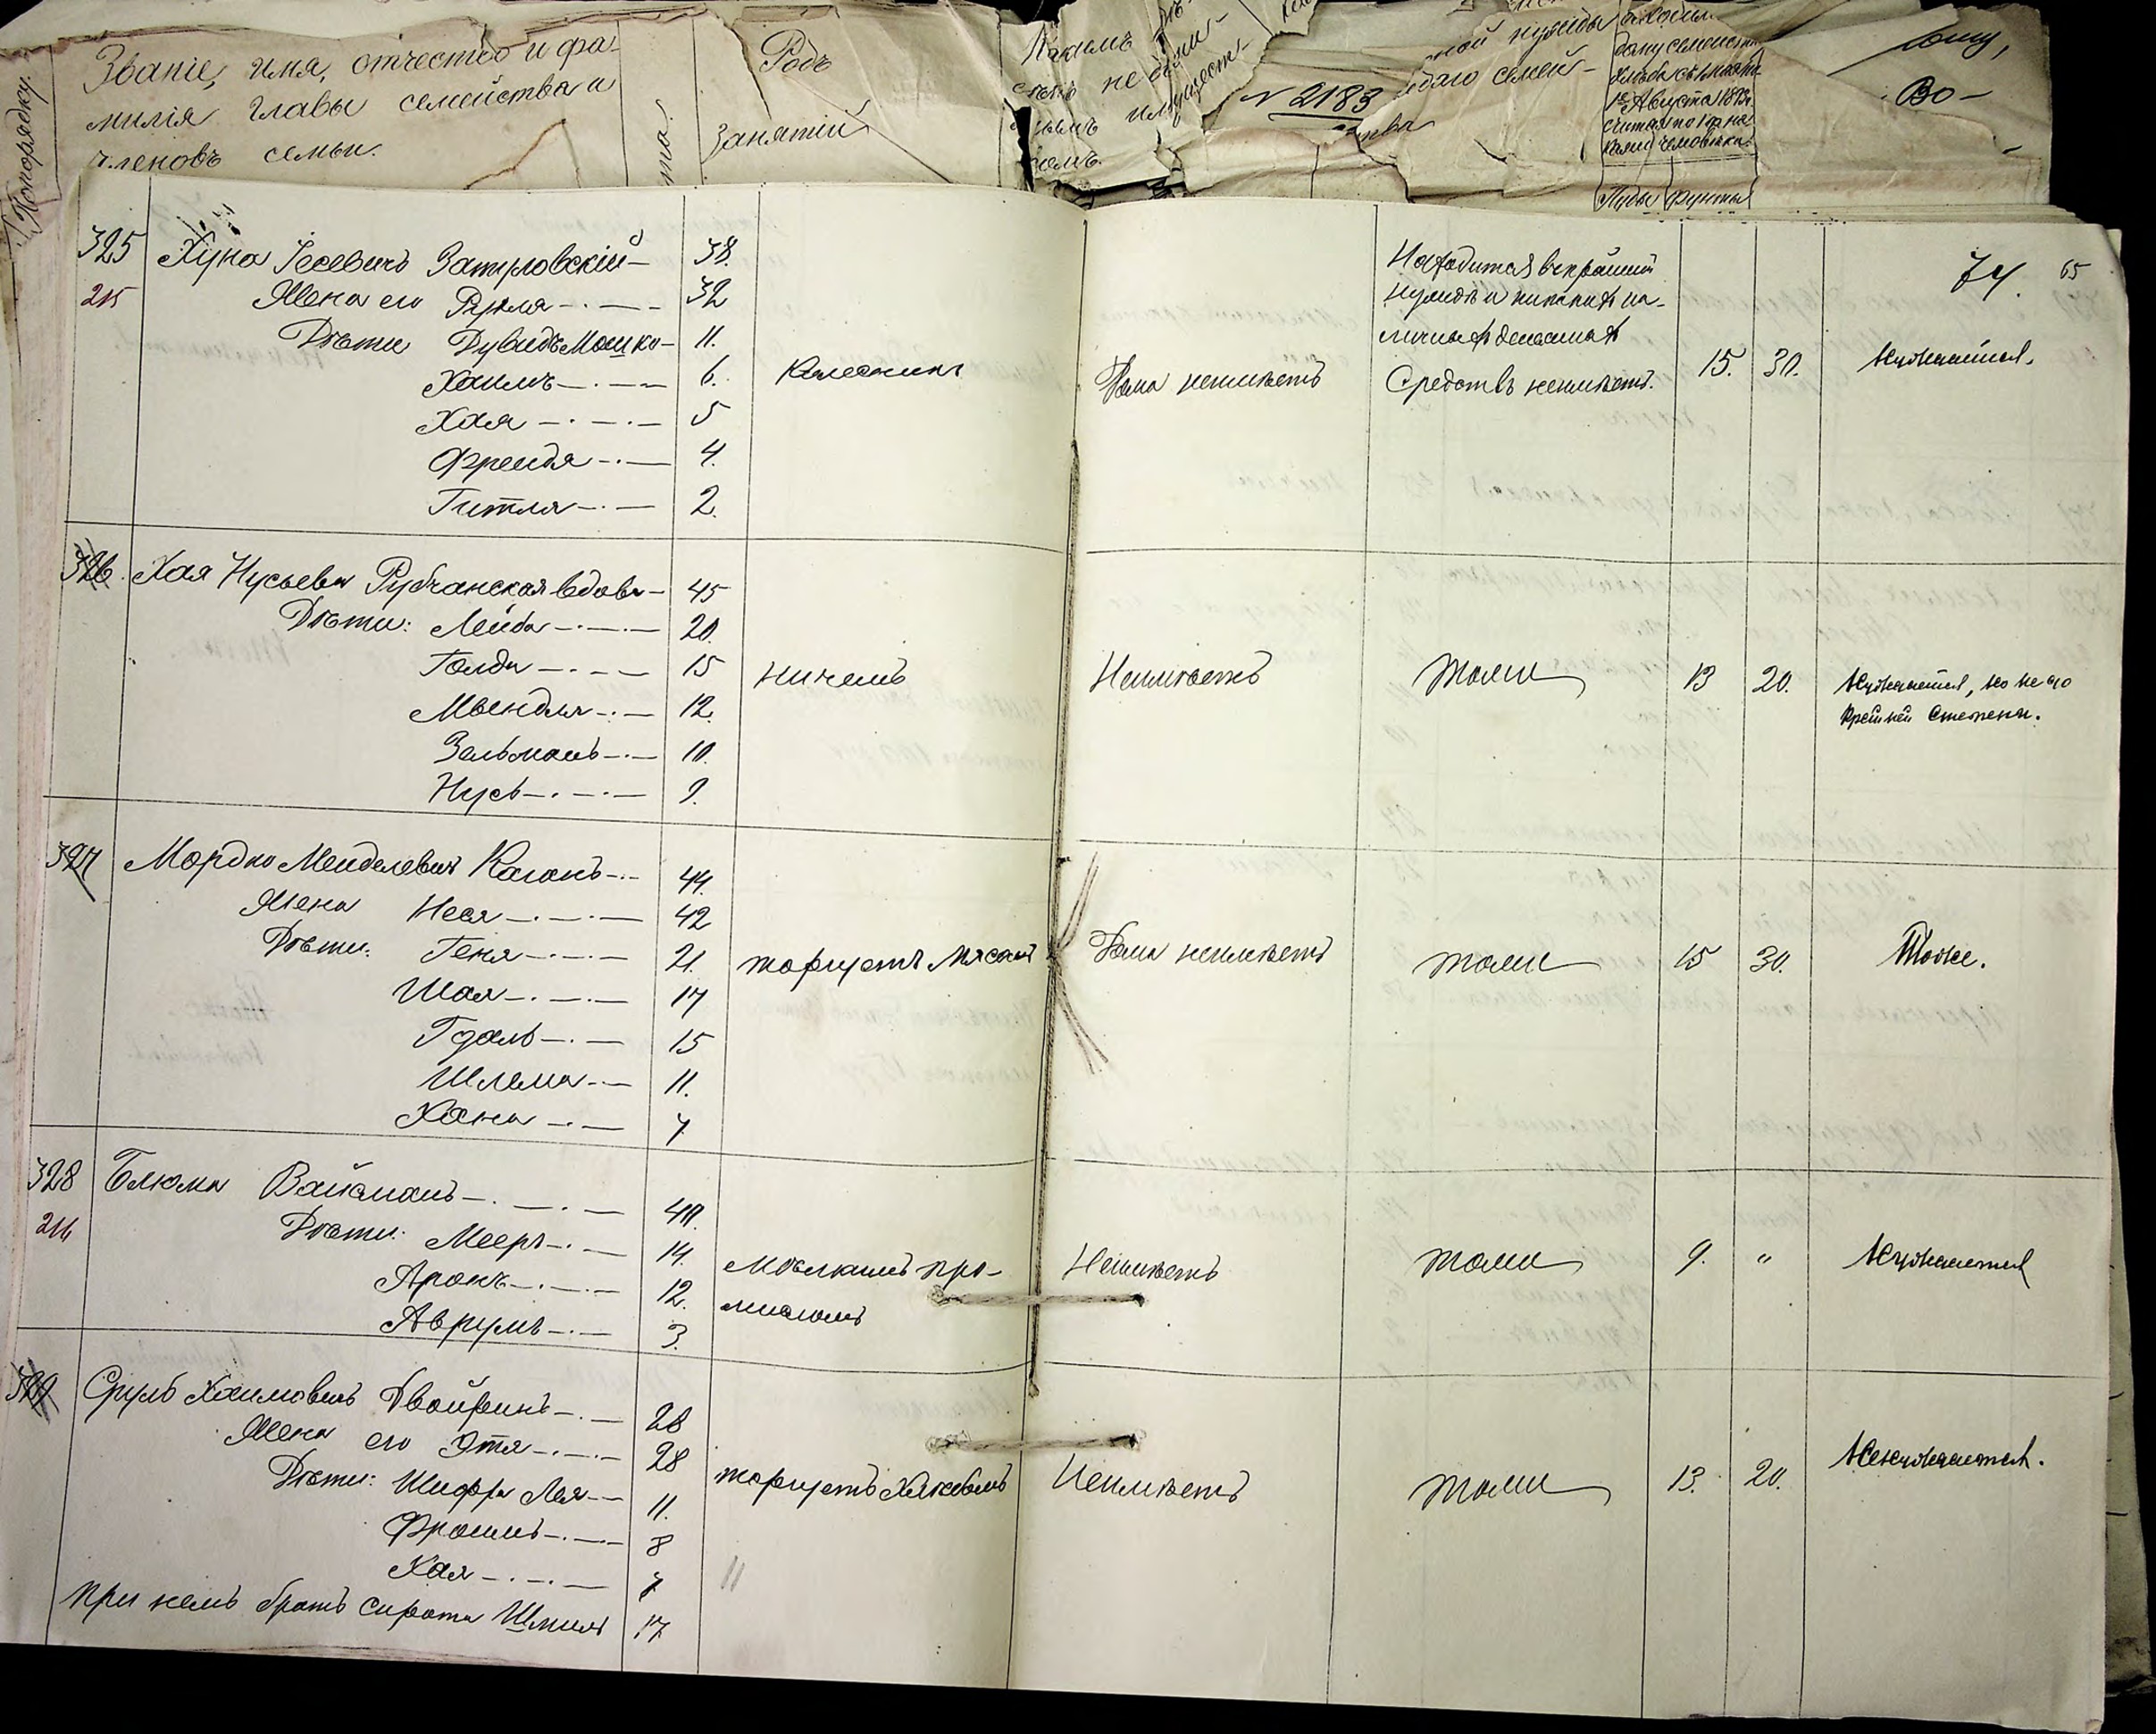 № Попорядку.
Званіе, имя, отчество и фа-
милія главы семейства и
членовъ семьи.
Родъ
занятій
Какимъ
не
имущест-
№ 2183
ной нужды
каждаго семей-
ства
дому семейству
1го Августа 1873г.
считая по 1 п. на
Пуды Фунты
Во-
74. 65
325 Хуна Іосевичъ Затуловскій 38.
215 Жена его Рухля 32
Дѣти Дувидъ Мошко 11.
Хаимъ 6.
Хая 5
Фрейда 4.
Гитля 2.
Колесникъ
Дома неимѣетъ
Находится въ крайней
нуждѣ и никакихъ на-
личныхъ денежныхъ
Средствъ неимѣетъ.
15. 30.
Нуждается.
326. Хая Нусьева Рубчанская вдова 45
Дѣти: Лейба 20.
Голда 15
Мвендля 12.
Зельманъ 10.
Нусь 9.
ничемъ
Неимѣетъ
тоже
13 20.
Нуждается, но не до
крайней степени.
327 Мордко Менделевичъ Каганъ 44.
Жена Неся 42
Дѣти: Геня 21.
Шая 17
Гдаль 15
Шлема 11.
Хана 7
торгуетъ мясомъ
Дома неимѣетъ
тоже
15 30.
Тоже.
328 Блюма Вайсманъ 40.
216 Дѣти: Мееръ 14.
Аронъ 12.
Аврумъ 3.
Мѣлкимъ про-
мысломъ
Неимѣетъ
тоже
9. "
Нуждается
329 Сруль Хаимовичъ Двойринъ 28
Жена его Этя 28
Дѣти: Шифра Лея 11.
Фроимъ 8
Хая 7
при немъ братъ сирота Шмиль 17.
торгуетъ
Неимѣетъ
тоже
13. 20.
Ненуждается.